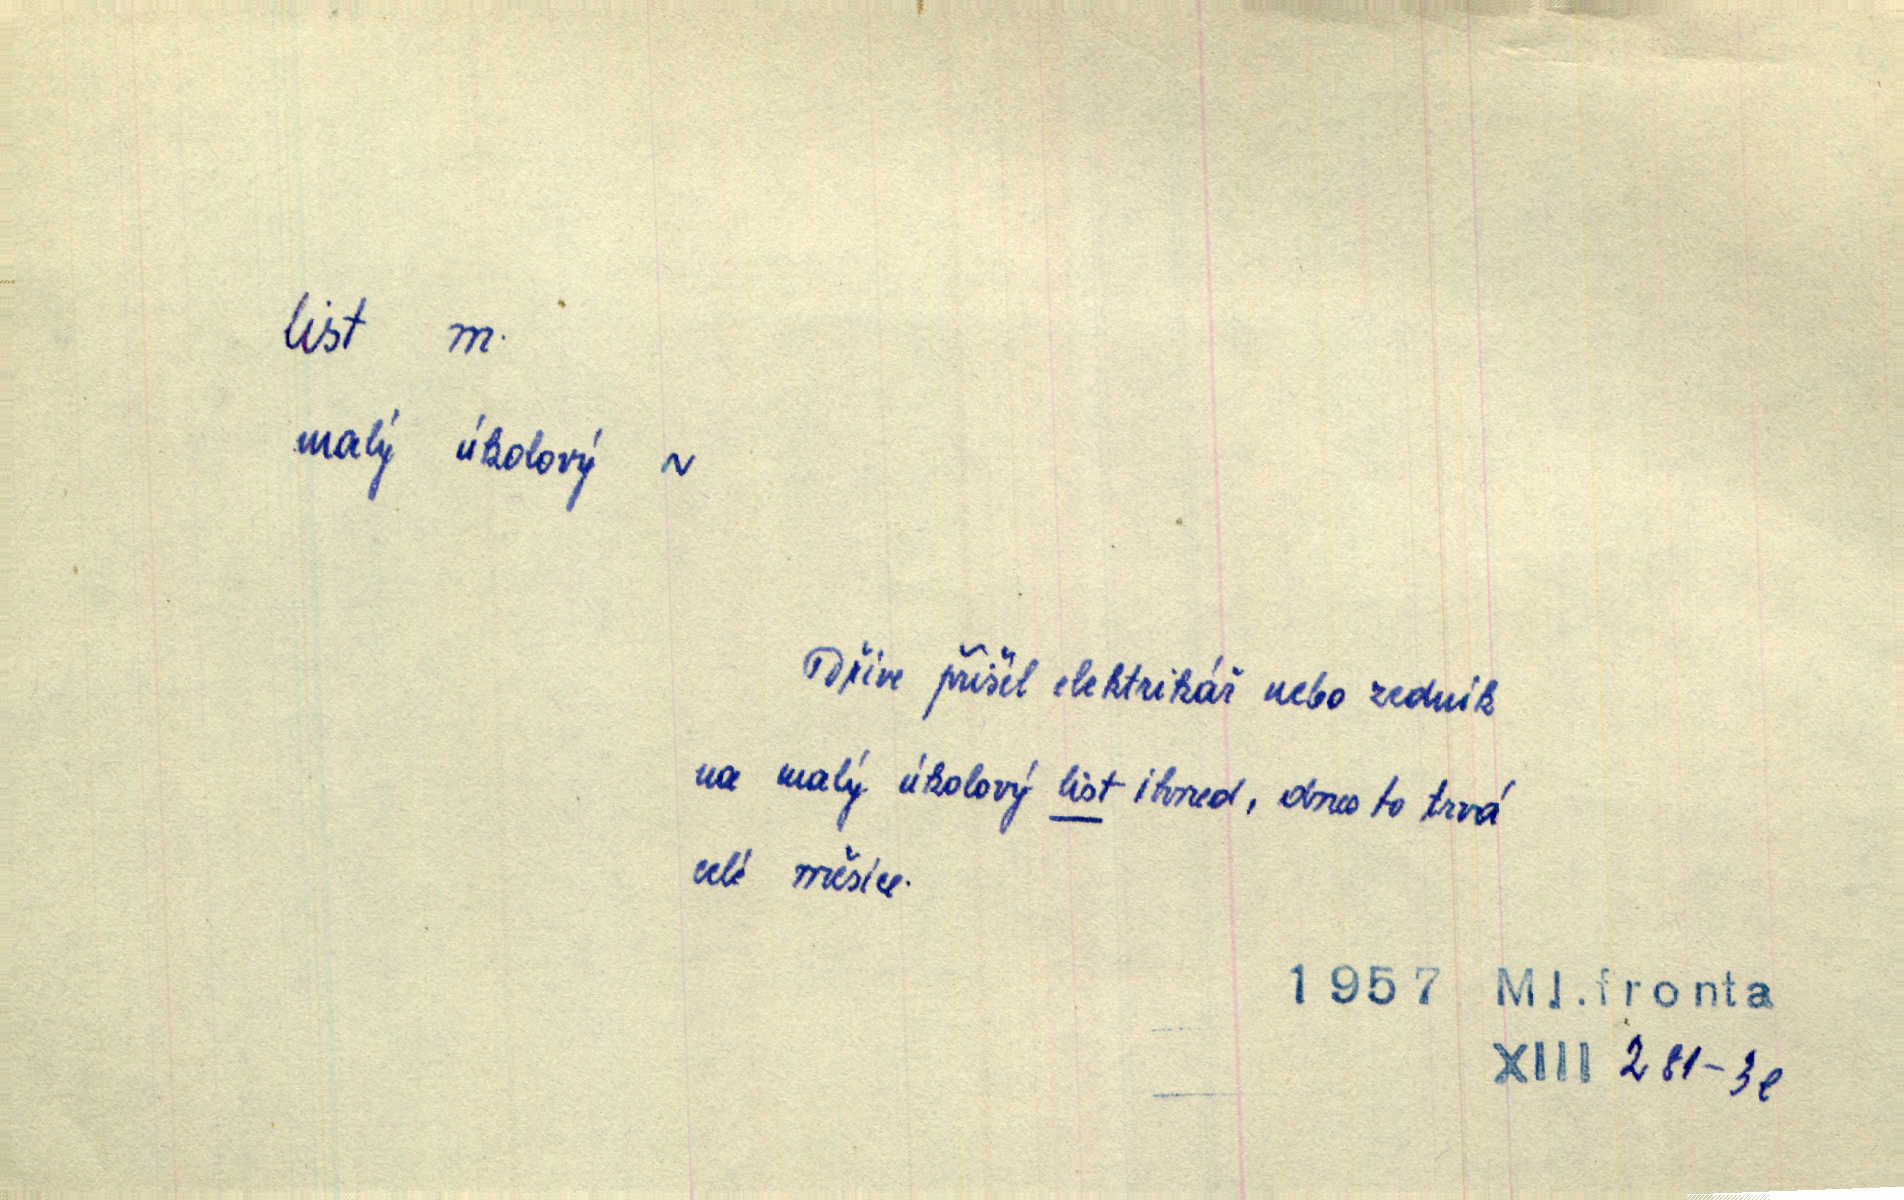 list m.
malý úkolový ~
Dříve přišel elektrikář nebo zedník
na malý úkolový list ihned, dnes to trvá
celé měsíce.
1957 Ml.fronta
XIII 281-3e